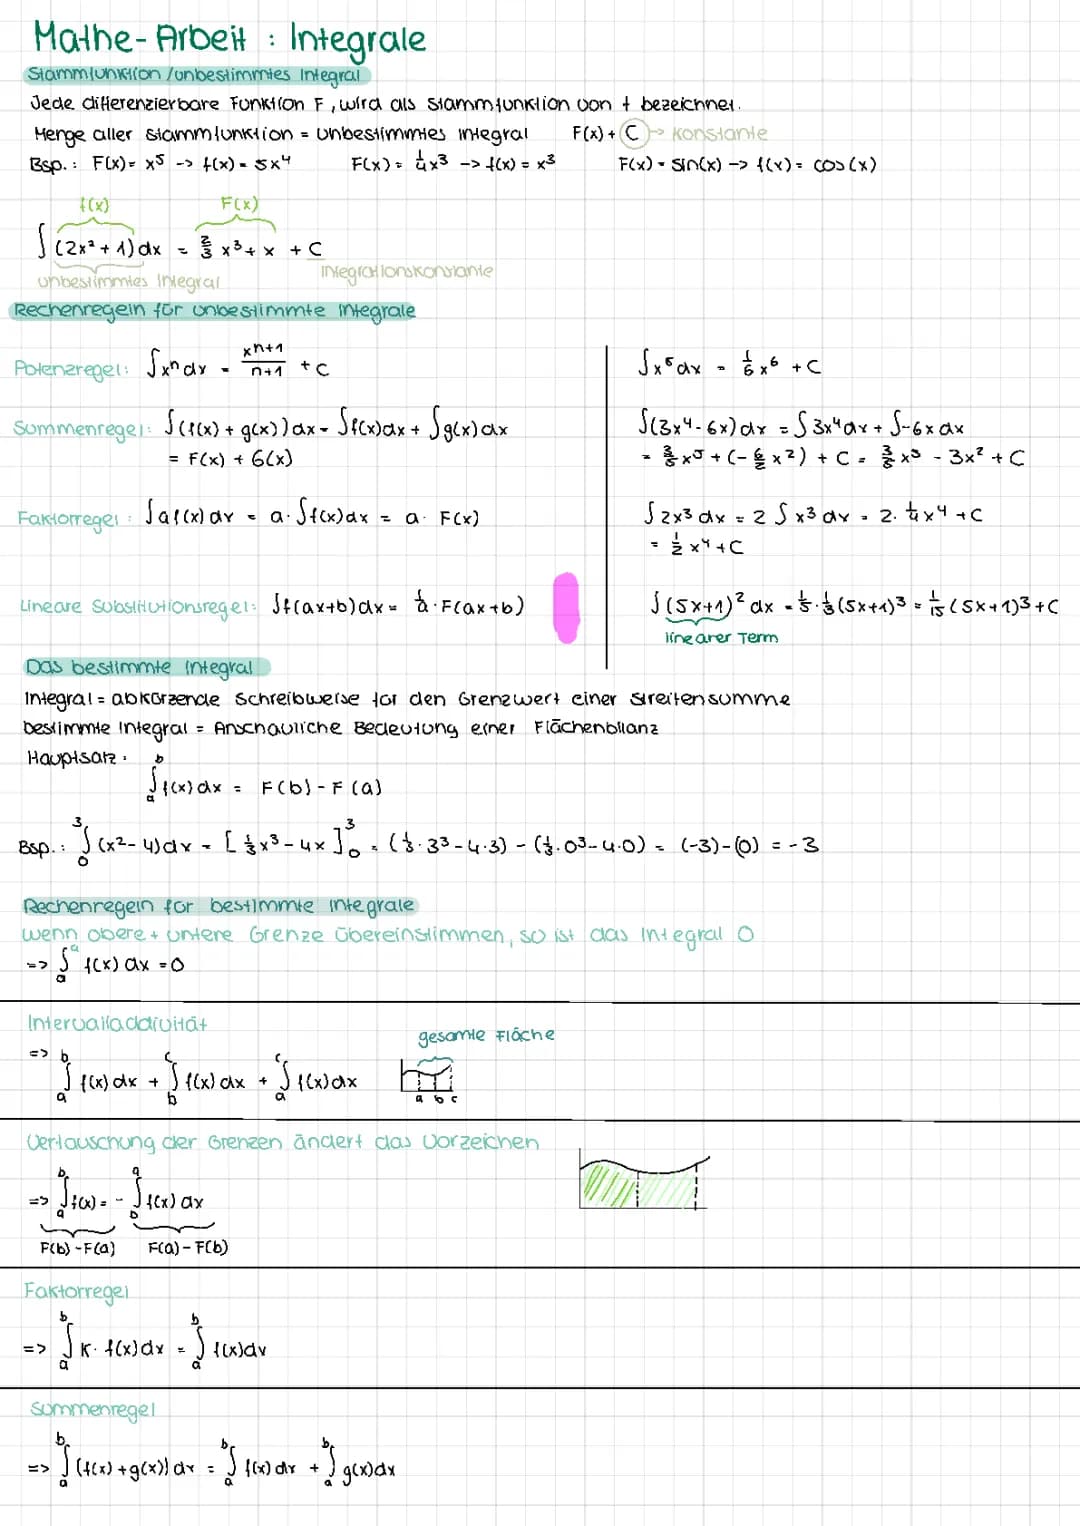 Mathe-Arbeit : Integrale
Stammfunktion / unbestimmtes Integral
Jede differenzierbare Funktion F, wird als Stammfunktion von f bezeichnet.
Menge aller Stammfunktion = unbestimmtes Integral F(x) + C -> Konstante
Bsp.: F(x) = x⁵ -> f(x) = 5x⁴ F(x) = 1/4 x³ -> f(x) = x³ F(x) = sin(x) -> f(x) = cos(x)
f(x) F(x)
∫(2x² + 1) dx = 2/3 x³ + x + C
unbestimmtes Integral Integrationskonstante
Rechenregeln für unbestimmte Integrale
Potenzregel: ∫xⁿ dx = xⁿ⁺¹/n+1 + C ∫x⁵ dx = 1/6 x⁶ + C
Summenregel: ∫(f(x) + g(x)) dx = ∫f(x) dx + ∫g(x) dx ∫(3x⁴ - 6x) dx = ∫3x⁴ dx + ∫-6x dx
= F(x) + G(x) = 3/5 x⁵ + (- 6/2 x²) + C = 3/5 x⁵ - 3x² + C
Faktorregel: ∫af(x) dx = a · ∫f(x) dx = a · F(x) ∫2x³ dx = 2 ∫x³ dx = 2 · 1/4 x⁴ + C
= 1/2 x⁴ + C
Lineare Substitutionsregel: ∫f(ax+b) dx = 1/a · F(ax+b) ∫(5x+1)² dx = 1/5 · 1/3 (5x+1)³ = 1/15 (5x+1)³ + C
linearer Term
Das bestimmte Integral
Integral = abkürzende Schreibweise für den Grenzwert einer Streifensumme
bestimmte Integral = Anschauliche Bedeutung einer Flächenbilanz
Hauptsatz:
∫ₐᵇ f(x) dx = F(b) - F(a)
Bsp.: ∫₀³ (x² - 4) dx = [1/3 x³ - 4x]₀³ = (1/3 · 3³ - 4·3) - (1/3 · 0³ - 4·0) = (-3) - (0) = -3
Rechenregeln für bestimmte Integrale
wenn obere + untere Grenze übereinstimmen, so ist das Integral 0
=> ∫ₐᵃ f(x) dx = 0
Intervalladdivität
gesamte Fläche
=> ∫ₐᵇ f(x) dx + ∫_b^c f(x) dx + ∫_a^c f(x) dx
a b c
Vertauschung der Grenzen ändert das Vorzeichen
=> ∫ₐᵇ f(x) = - ∫_b^a f(x) dx
F(b) - F(a) F(a) - F(b)
Faktorregel
=> ∫ₐᵇ K · f(x) dx = ∫ₐᵇ f(x) dx
Summenregel
=> ∫ₐᵇ (f(x) + g(x)) dx = ∫ₐᵇ f(x) dx + ∫ₐᵇ g(x) dx